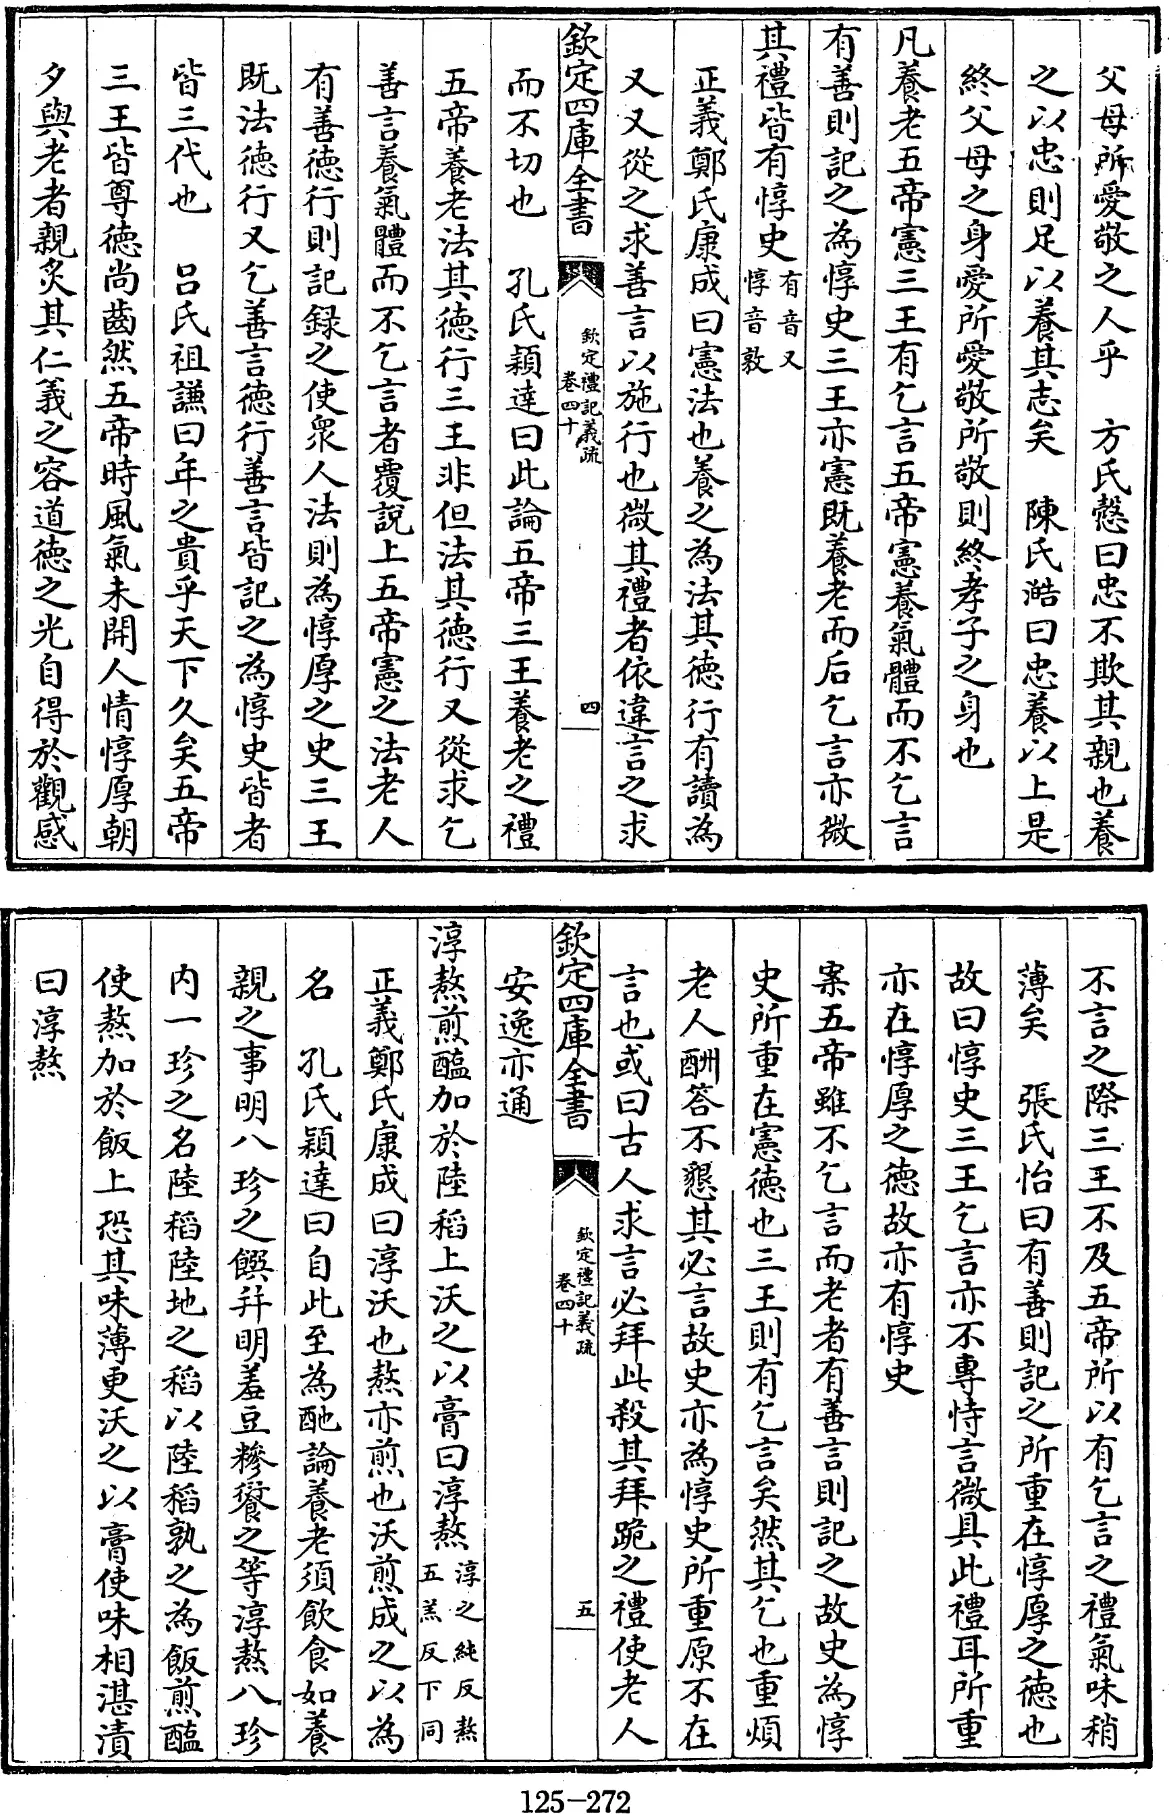 父母所愛敬之人乎　方氏慤曰忠不欺其親也養
之以忠則足以養其志矣　陳氏澔曰忠養以上是
終父母之身愛所愛敬所敬則終孝子之身也
凡養老五帝憲三王有乞言五帝憲養氣體而不乞言
有善則記之為惇史三王亦憲既養老而后乞言亦微
其禮皆有惇史有音又惇音敦
正義鄭氏康成曰憲法也養之為法其德行有讀為
又又從之求善言以施行也微其禮者依違言之求
欽定四庫全書　欽定禮記義疏卷四十　四
而不切也　孔氏穎達曰此論五帝三王養老之禮
五帝養老法其德行三王非但法其德行又從求乞
善言養氣體而不乞言者覆說上五帝憲之法老人
有善德行則記録之使衆人法則為惇厚之史三王
既法德行又乞善言德行善言皆記之為惇史皆者
皆三代也　呂氏祖謙曰年之貴乎天下久矣五帝
三王皆尊德尚齒然五帝時風氣未開人情惇厚朝
夕與老者親炙其仁義之容道德之光自得於觀感
不言之際三王不及五帝所以有乞言之禮氣味稍
薄矣　張氏怡曰有善則記之所重在惇厚之德也
故曰惇史三王乞言亦不專恃言微具此禮耳所重
亦在惇厚之德故亦有惇史
案五帝雖不乞言而老者有善言則記之故史為惇
史所重在憲德也三王則有乞言矣然其乞也重煩
老人酬答不懇其必言故史亦為惇史所重原不在
言也或曰古人求言必拜此殺其拜跪之禮使老人
欽定四庫全書　欽定禮記義疏卷四十　五
安逸亦通
淳熬煎醢加於陸稻上沃之以膏曰淳熬淳之純反熬五羔反下同
正義鄭氏康成曰淳沃也熬亦煎也沃煎成之以為
名　孔氏穎達曰自此至為酏論養老須飲食如養
親之事明八珍之饌并明羞豆糝餐之等淳熬八珍
内一珍之名陸稻陸地之稻以陸稻孰之為飯煎醢
使熬加於飯上恐其味薄更沃之以膏使味相湛漬
曰淳熬
125-272